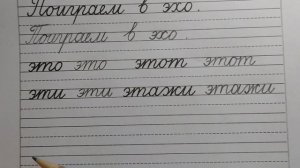 Поиграем в эхо.
Поиграем в эхо.
это это этот этот
эти эти этажи этажи